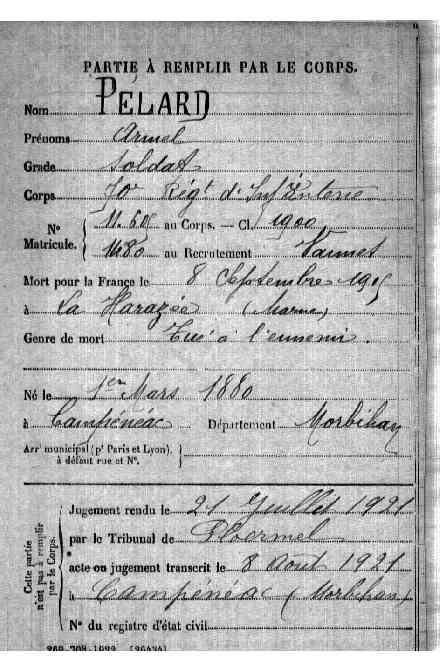 PARTIE À REMPLIR PAR LE CORPS.
Nom PÉLARD
Prénoms Armel
Grade Soldat
Corps 70e Régt d'Infanterie
N° Matricule. { 11.605 au Corps. — Cl. 1900
1480 au Recrutement Vannes
Mort pour la France le 8 Septembre 1915
à La Harazée (Marne)
Genre de mort Tué à l'ennemi.
Né le 1er Mars 1880
à Campénéac Département Morbihan
Arrt municipal (pr Paris et Lyon),
à défaut rue et N°.
Cette partie
n'est pas à remplir
par le Corps.
Jugement rendu le 21 Juillet 1921
par le Tribunal de Ploermel
acte ou jugement transcrit le 8 Aout 1921
à Campénéac (Morbihan)
N° du registre d'état civil